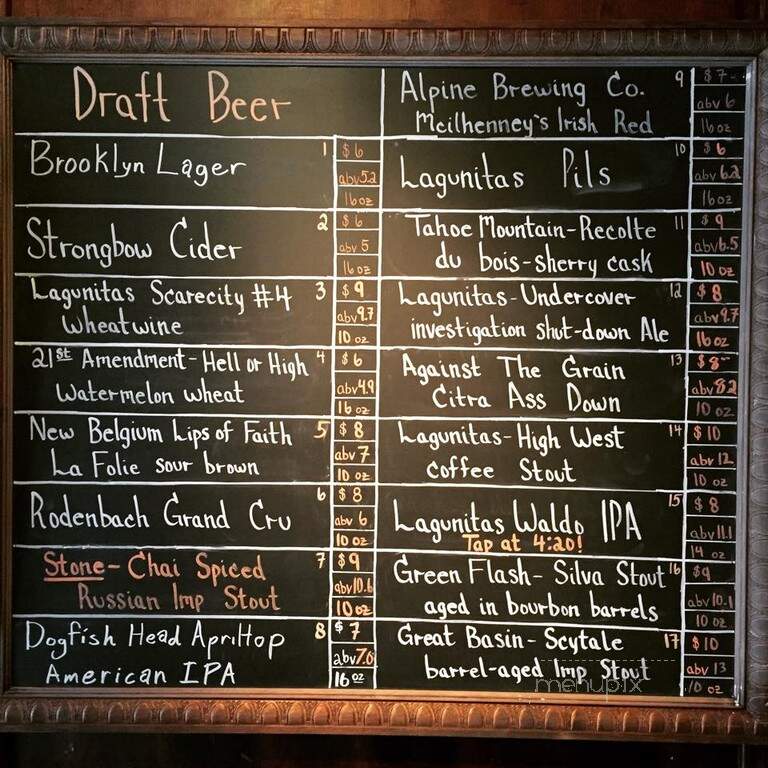 Draft Beer
Brooklyn Lager 1 $6
abv 5.2
16 oz
Strongbow Cider 2 $6
abv 5
16 oz
Lagunitas Scarecity #4 3 $9
Wheatwine abv 9.7
10 oz
21st Amendment - Hell or High 4 $6
Watermelon wheat abv 4.9
16 oz
New Belgium Lips of Faith 5 $8
La Folie sour brown abv 7
10 oz
Rodenbach Grand Cru 6 $8
abv 6
10 oz
Stone - Chai Spiced 7 $9
Russian Imp Stout abv 10.6
10 oz
Dogfish Head Aprihop 8 $7
American IPA abv 7.0
16 oz
Alpine Brewing Co. 9 $7
Mcilhenney's Irish Red abv 6
16 oz
Lagunitas Pils 10 $6
abv 6.2
16 oz
Tahoe Mountain - Recolte 11 $9
du bois - sherry cask abv 6.5
10 oz
Lagunitas - Undercover 12 $8
investigation shut-down Ale abv 9.7
16 oz
Against The Grain 13 $8
Citra Ass Down abv 8.2
10 oz
Lagunitas - High West 14 $10
coffee Stout abv 12
10 oz
Lagunitas Waldo IPA 15 $8
Tap at 4:20! abv 11.1
14 oz
Green Flash - Silva Stout 16 $9
aged in bourbon barrels abv 10.1
10 oz
Great Basin - Scytale 17 $10
barrel-aged Imp Stout abv 13
10 oz
menupix